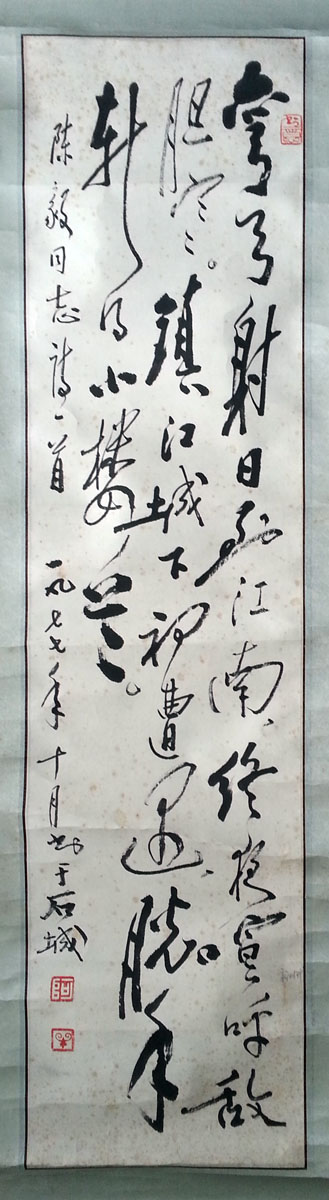 弯弓射日到江南、终夜宣呼敌
胆寒。鎮江城下初遭遇、脱手
斩得小楼兰。
陈毅同志诗一首 一九七七年十月书于石城